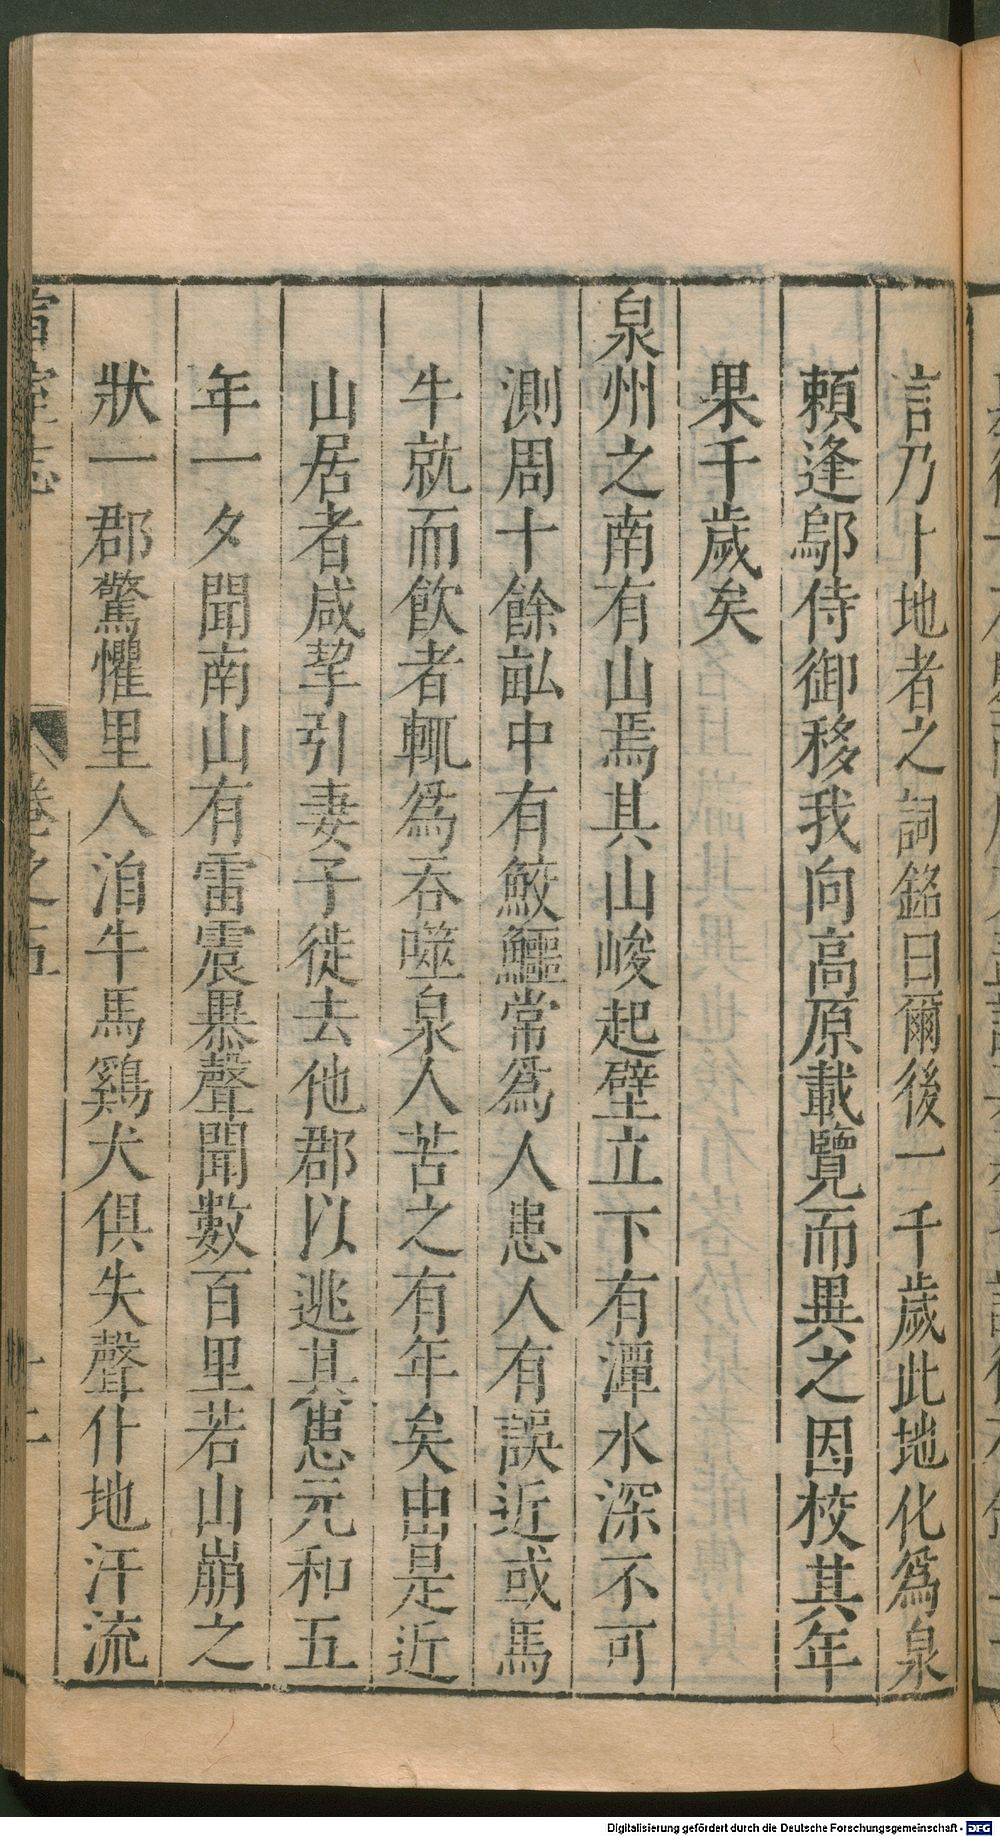 言乃卜地者之詞銘曰爾後一千歲此地化爲泉
賴逢鄔侍御移我向高原載覽而異之因校其年
果千歲矣
泉州之南有山焉其山峻起壁立下有潭水深不可
測周十餘畝中有鮫鱷常爲人患人有誤近或馬
牛就而飲者輒爲吞噬泉人苦之有年矣由是近
山居者咸挈引妻子徙去他郡以逃其患元和五
年一夕聞南山有雷震暴聲聞數百里若山崩之
狀一郡驚懼里人洎牛馬鷄犬俱失聲仆地汗流
宣室志
卷之五
十二
Digitalisierung gefördert durch die Deutsche Forschungsgemeinschaft - DFG